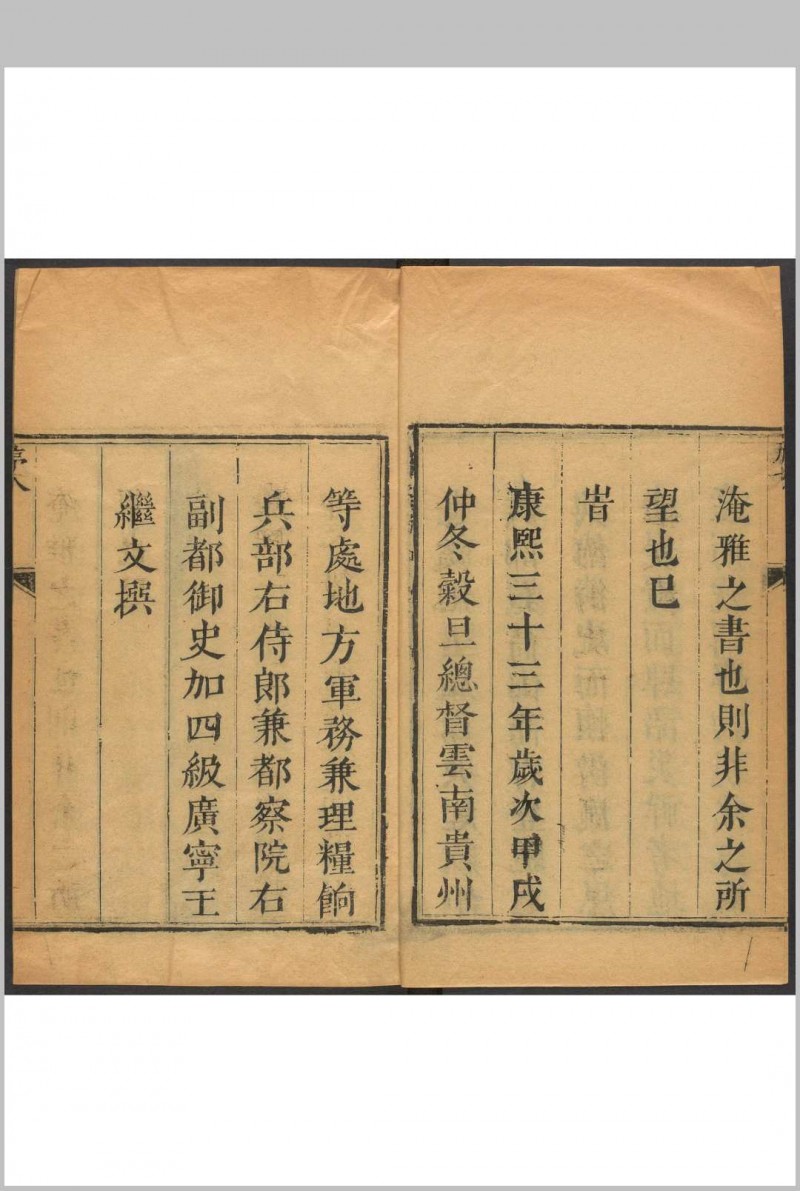 淹雅之書也則非余之所
望也巳
旹
康熙三十三年歲次甲戌
仲冬穀旦總督雲南貴州
等處地方軍務兼理糧餉
兵部右侍郎兼都察院右
副都御史加四級廣寧王
繼文撰
序八